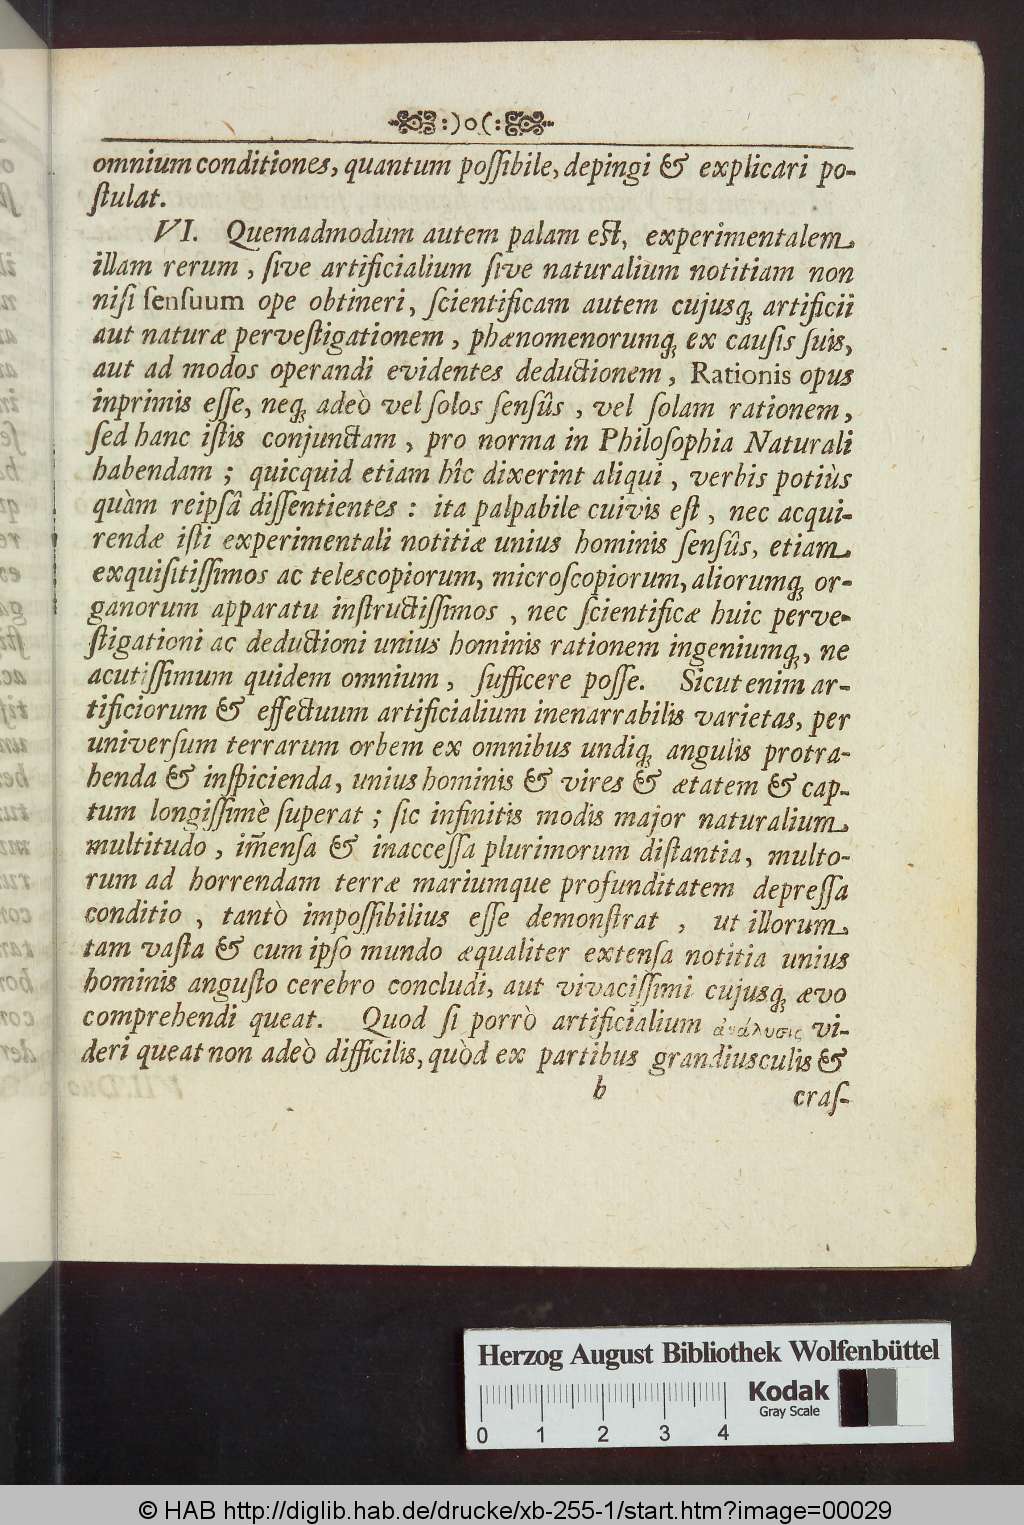 :)o(:
omnium conditiones, quantum poſſibile, depingi & explicari po-
ſtulat.
VI. Quemadmodum autem palam eſt, experimentalem
illam rerum, ſive artificialium ſive naturalium notitiam non
niſi ſenſuum ope obtineri, ſcientificam autem cujusq; artificii
aut naturæ perveſtigationem, phænomenorumq; ex cauſis ſuis,
aut ad modos operandi evidentes deductionem, Rationis opus
inprimis eſſe, neq; adeò vel ſolos ſenſûs, vel ſolam rationem,
ſed hanc iſtis conjunctam, pro norma in Philoſophia Naturali
habendam; quicquid etiam hîc dixerint aliqui, verbis potiùs
quàm reipſâ diſſentientes: ita palpabile cuivis eſt, nec acqui-
rendæ iſti experimentali notitiæ unius hominis ſenſûs, etiam
exquiſitiſſimos ac teleſcopiorum, microſcopiorum, aliorumq; or-
ganorum apparatu inſtructiſſimos, nec ſcientificæ huic perve-
ſtigationi ac deductioni unius hominis rationem ingeniumq;, ne
acutiſſimum quidem omnium, ſufficere poſſe. Sicut enim ar-
tificiorum & effectuum artificialium inenarrabilis varietas, per
univerſum terrarum orbem ex omnibus undiq; angulis protra-
henda & inſpicienda, unius hominis & vires & ætatem & cap-
tum longiſſimè ſuperat; ſic infinitis modis major naturalium
multitudo, im̄enſa & inacceſſa plurimorum diſtantia, multo-
rum ad horrendam terræ mariumque profunditatem depreſſa
conditio, tantò impoſſibilius eſſe demonſtrat, ut illorum
tam vaſta & cum ipſo mundo æqualiter extenſa notitia unius
hominis anguſto cerebro concludi, aut vivaciſſimi cujusq; ævo
comprehendi queat. Quod ſi porrò artificialium ἀνάλυσις vi-
deri queat non adeò difficilis, quòd ex partibus grandiusculis &
b
craſ-
Herzog August Bibliothek Wolfenbüttel
Kodak
Gray Scale
0 1 2 3 4
© HAB http://diglib.hab.de/drucke/xb-255-1/start.htm?image=00029